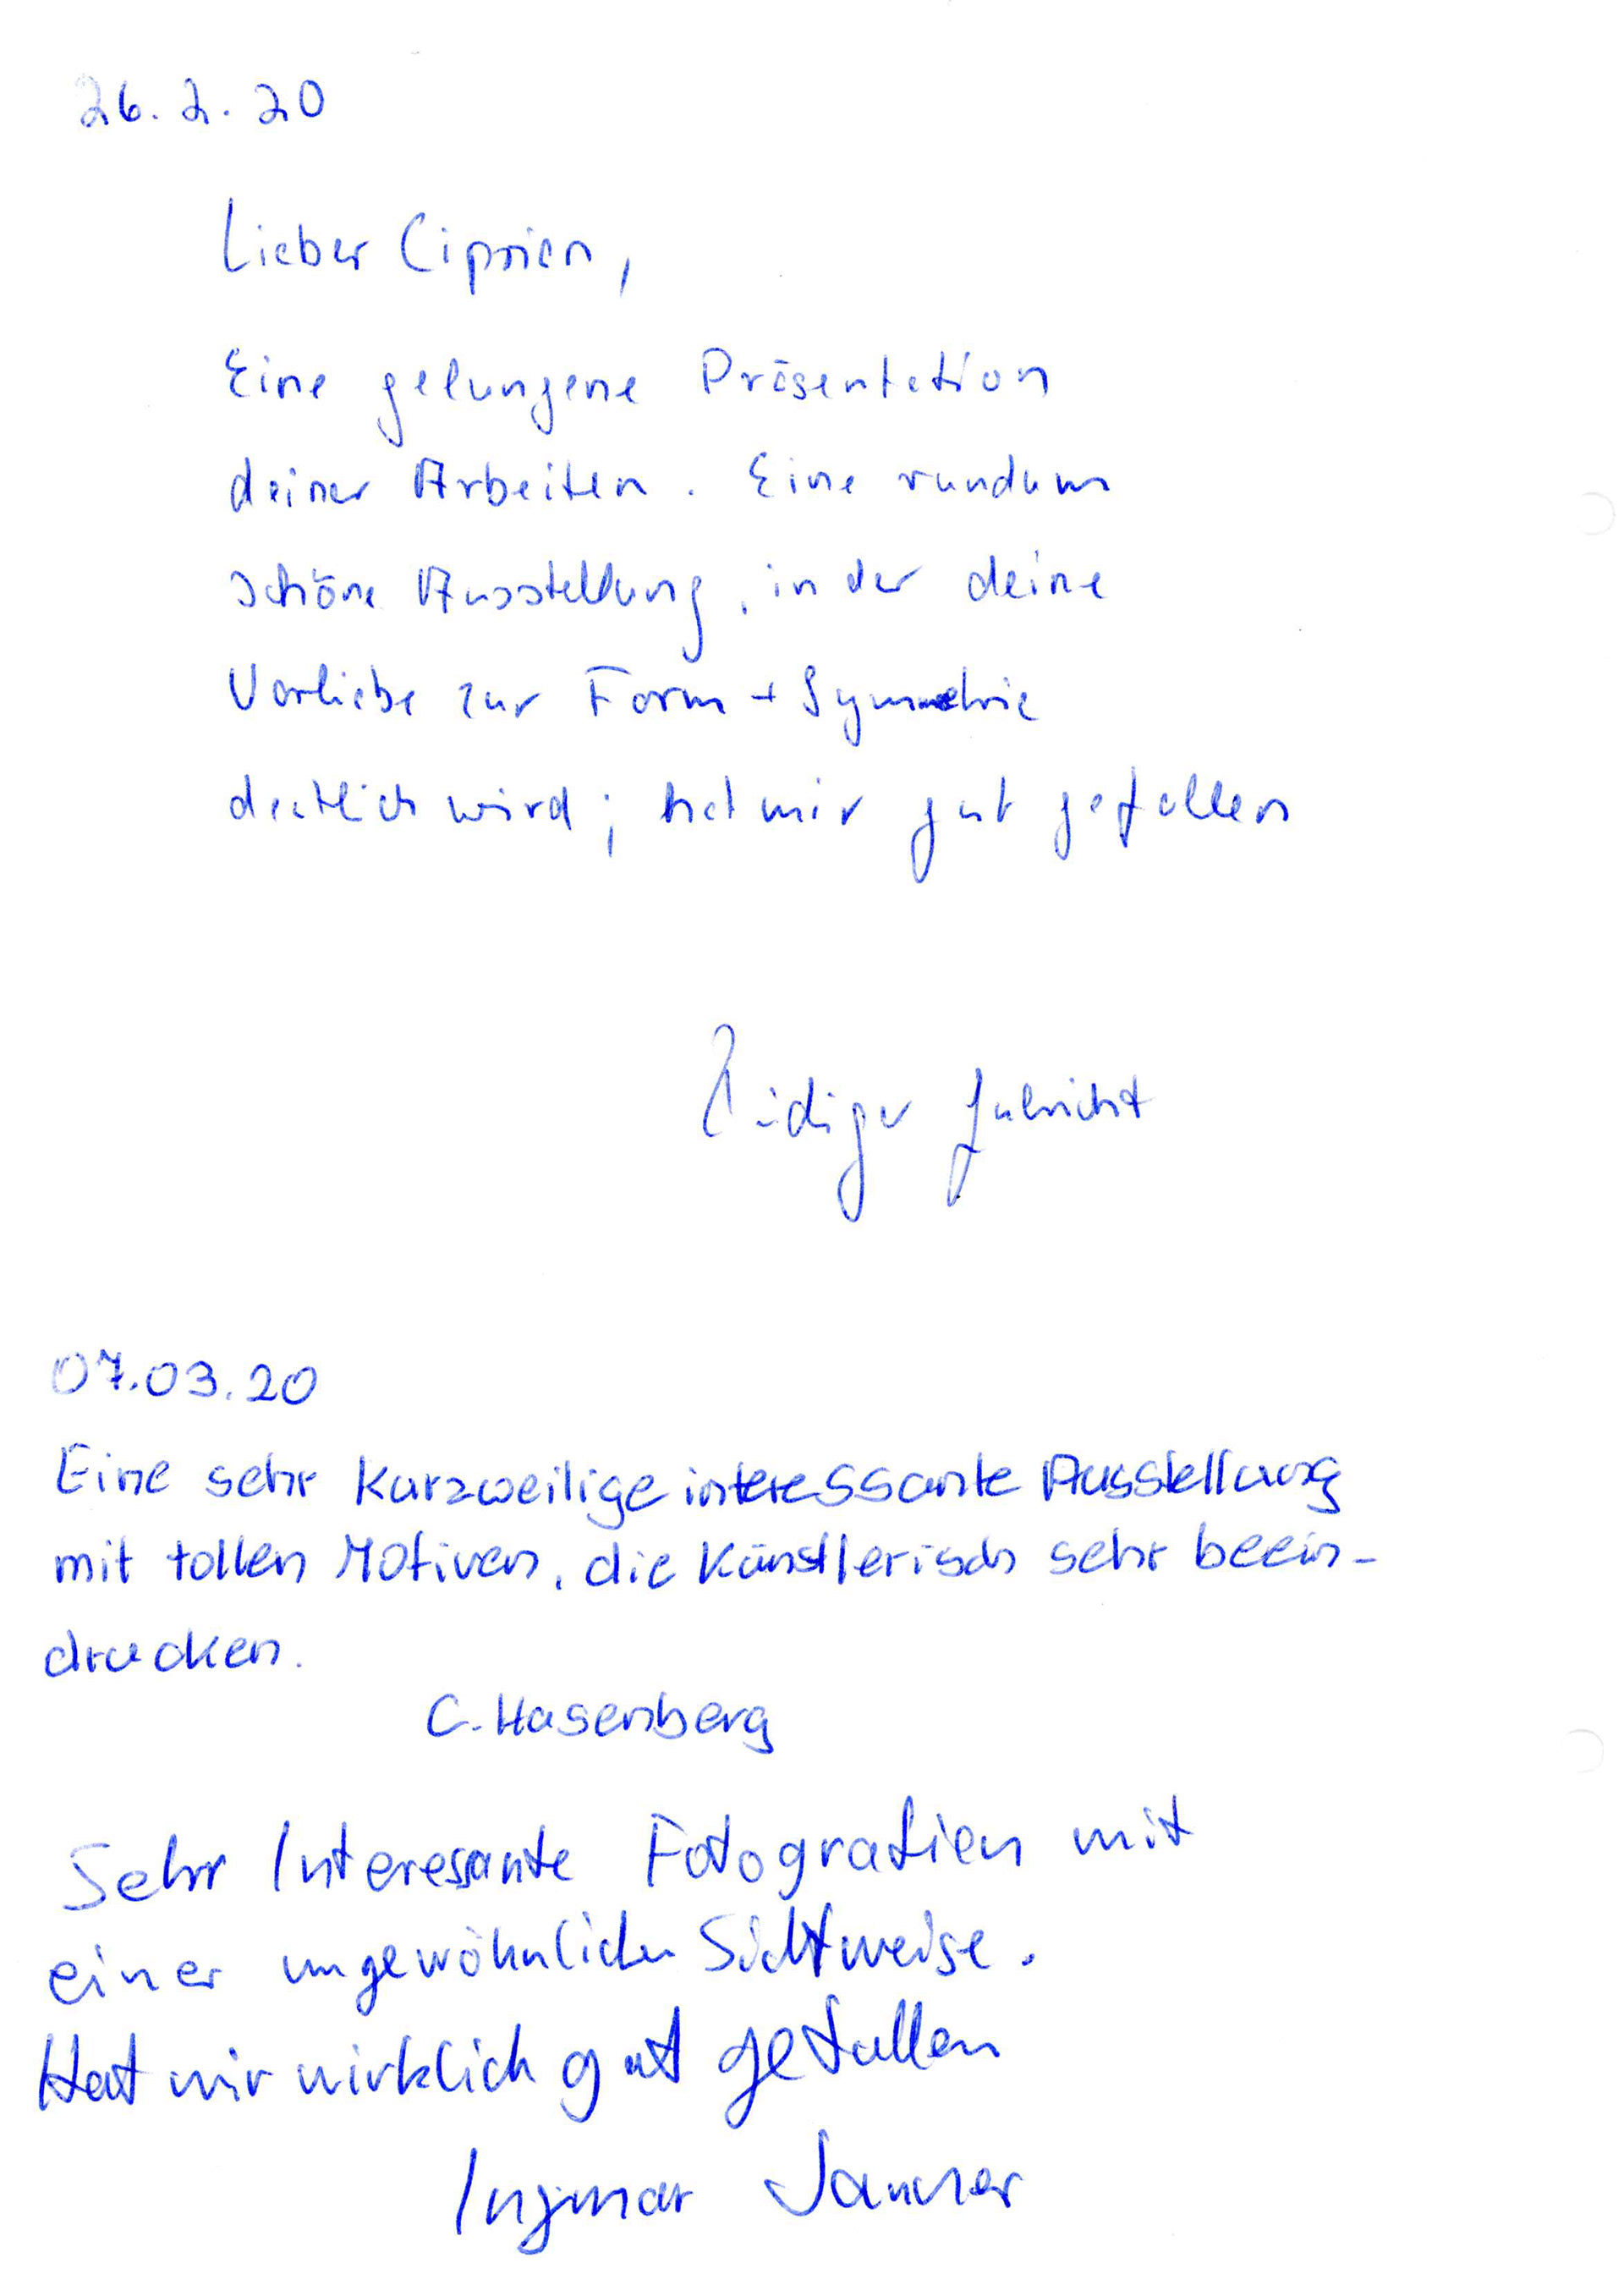 26. 2. 20
Lieber Ciprian,
Eine gelungene Präsentation
deiner Arbeiten. Eine rundum
schöne Ausstellung, in der deine
Vorliebe zur Form + Symmetrie
deutlich wird; hat mir gut gefallen
Rüdiger
07.03.20
Eine sehr kurzweilige interessante Ausstellung
mit tollen Motiven, die künstlerisch sehr beein-
drucken.
C. Hasenberg
Sehr Interessante Fotografien mit
einer ungewöhnlichen Sichtweise.
Hat mir wirklich gut gefallen
Ingmar